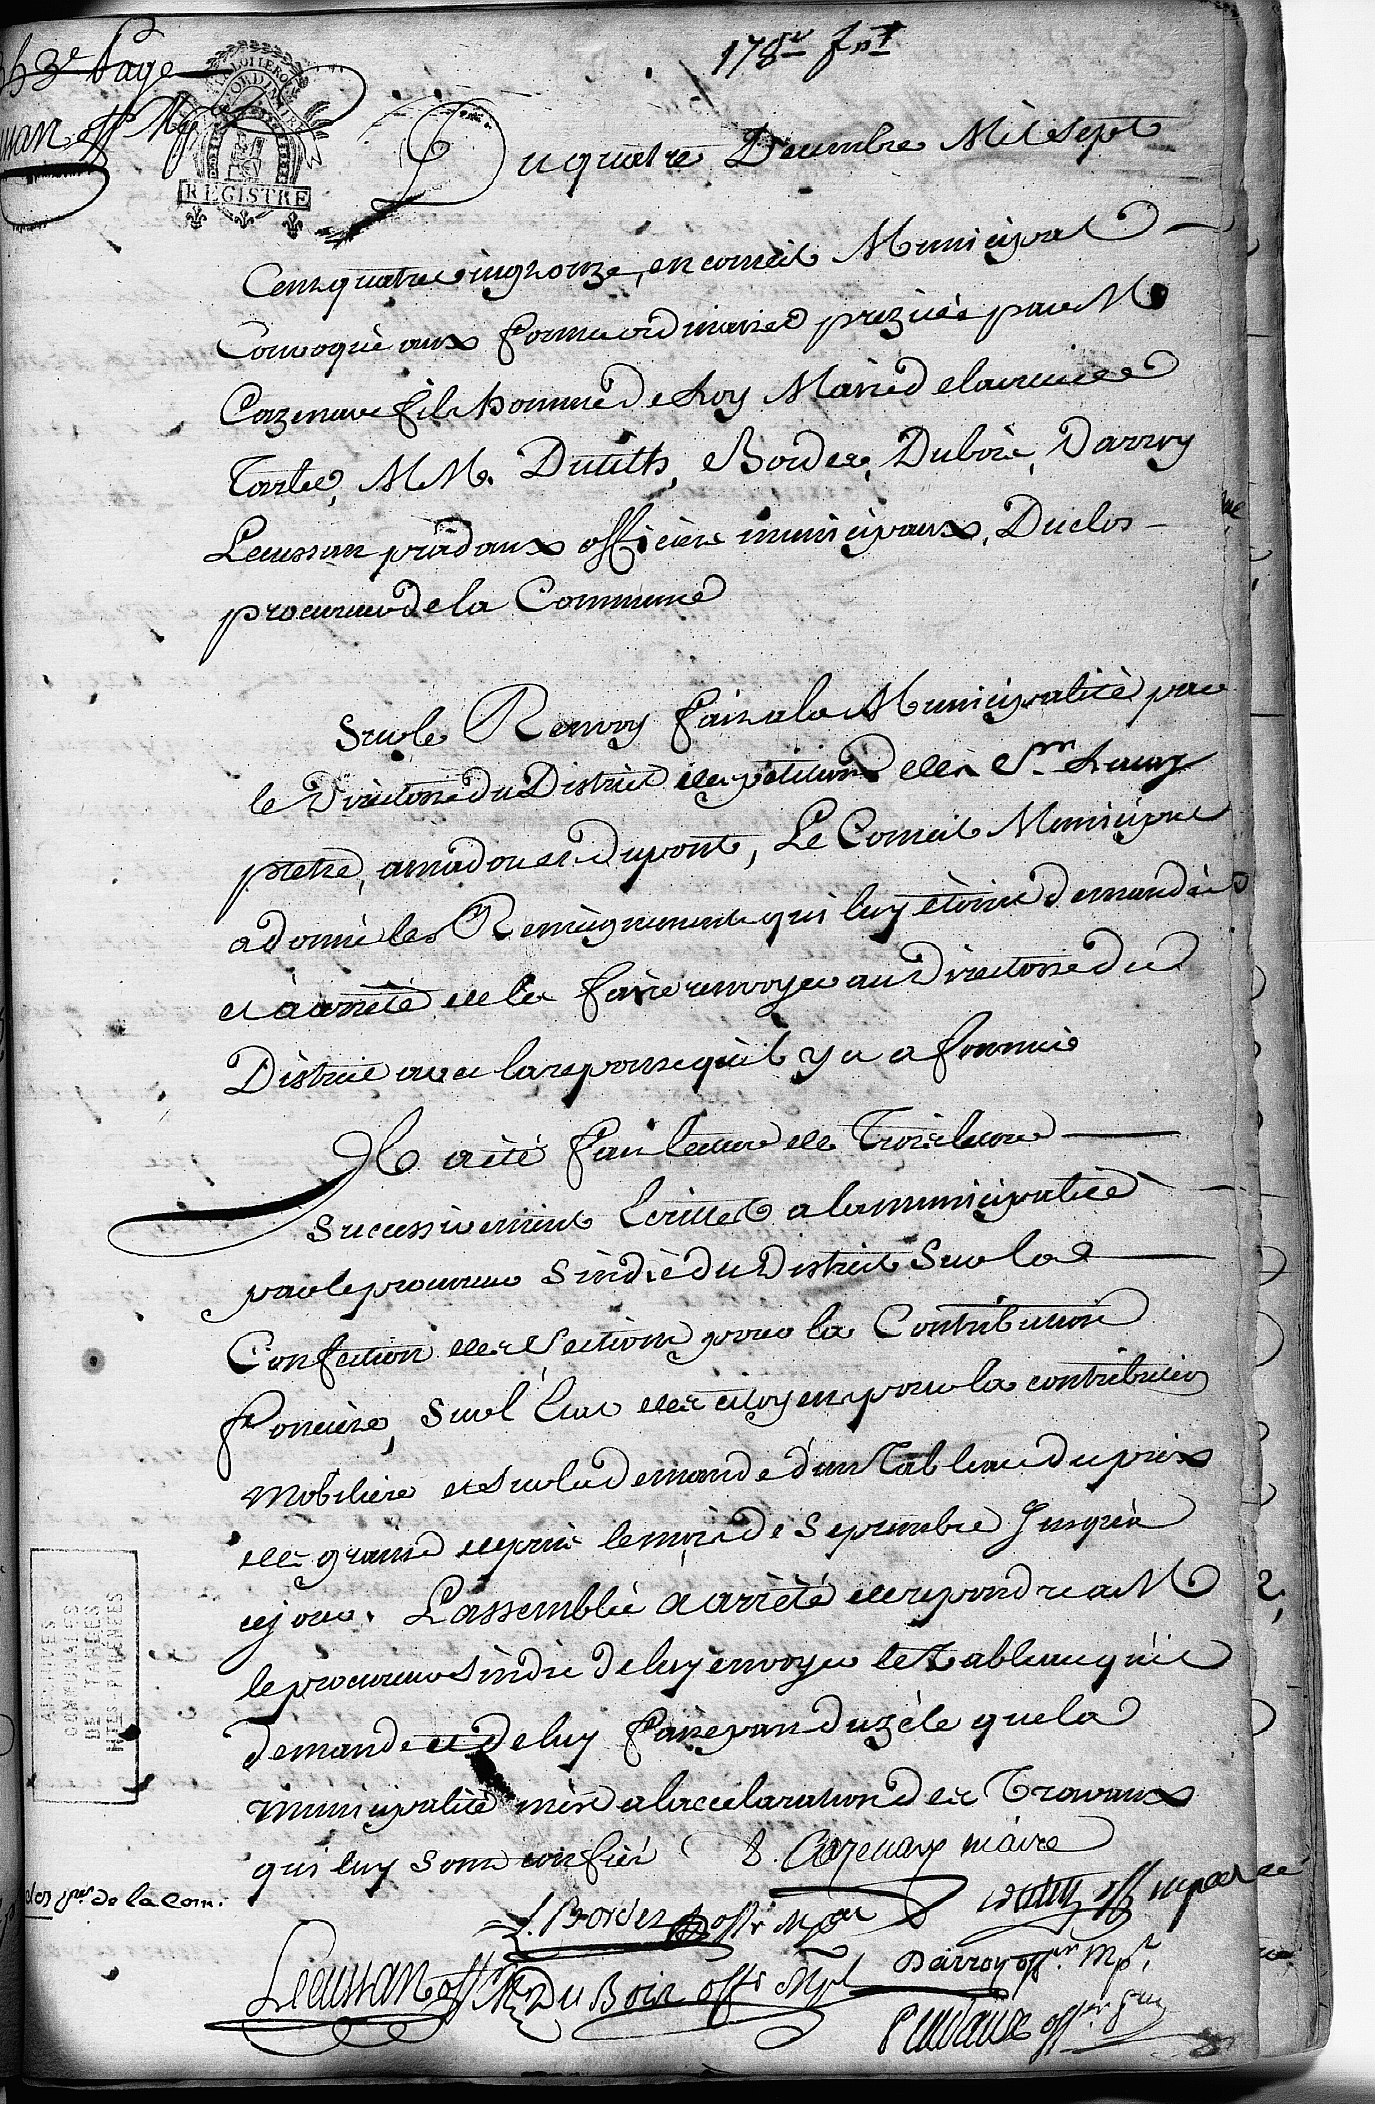 353e page
178e fnt
REGISTRE
Du quatre Decembre Mil sept
Cens quatrevingt onze, en conseil Municipal
Convoqué aux formes ordinaires prezidée par M
Cazenave fils homme de Loy Maire de la ville de
Tarbe, MM. Dutilh, Bordes, Dubois, Darroy
Leaussan pradaux officiers municipaux, Duclos
procureur de la Commune
Sur le Renvoy fait a la Municipalité par
le Directoire du District des petitions des Srs
pretre, amadou et Dupont, Le Conseil Municipal
a donné les Renseignements qui luy étoint demandés
et a arrêté de les faire renvoyer au Directoire du
District avec la reponse quil y a fournie
Il a été fait lecture de Trois lettres
Successivement Ecrittes a la municipalité
par le procureur sindic du District Sur la
Confection des Sections pour la Contribution
fonciere, Sur l'Etat des citoyens pour la contribution
Mobiliere et Sur la demande d'un Tableau du prix
des grains depuis le mois de Septembre Jusqu'a
ce jour. L'assemblée a arrêté de repondre a M
le procureur sindic de luy envoyer le Tableau qu'il
demande et de luy faire part du zéle que la
Municipalité met a la ccelaration des Travaux
qui luy sont confiés
Cazenave maire
Dutilh off mpal
de la com.
J. Bordes offr mpal
Darroy offr Mpl
Leaussan offr Mpl
DuBois offr Mpl
Pradaux offer
ARCHIVES
COMMUNALES
DE TARBES
HTES-PYRÉNÉES